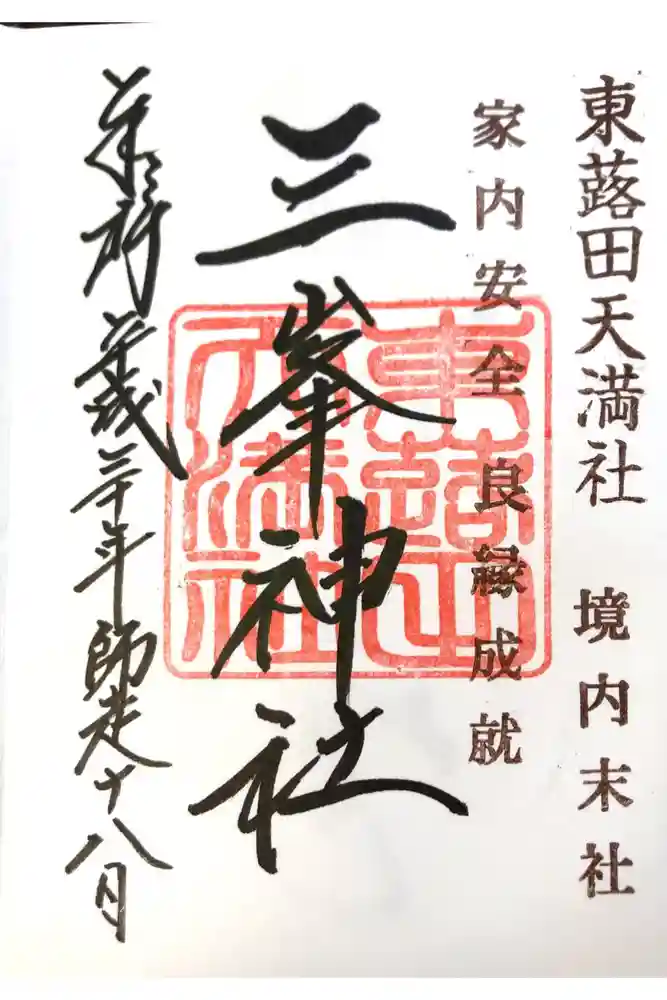 東蕗田天満社　境内末社
家内安全　良縁成就
三峯神社
奉拝　平成三十年　師走十八日
東蕗田
天満社